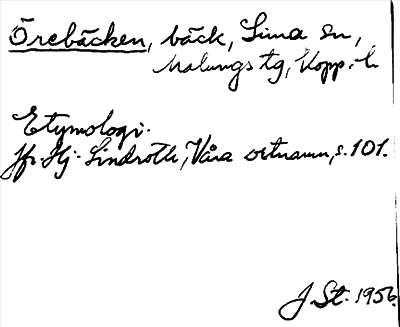 Örebäcken, bäck, Lima sn,
Malungs tg, Kopp. l.
Etymologi.
Jfr Hj. Lindroth, Våra ortnamn, s. 101.
J. St. 1956.